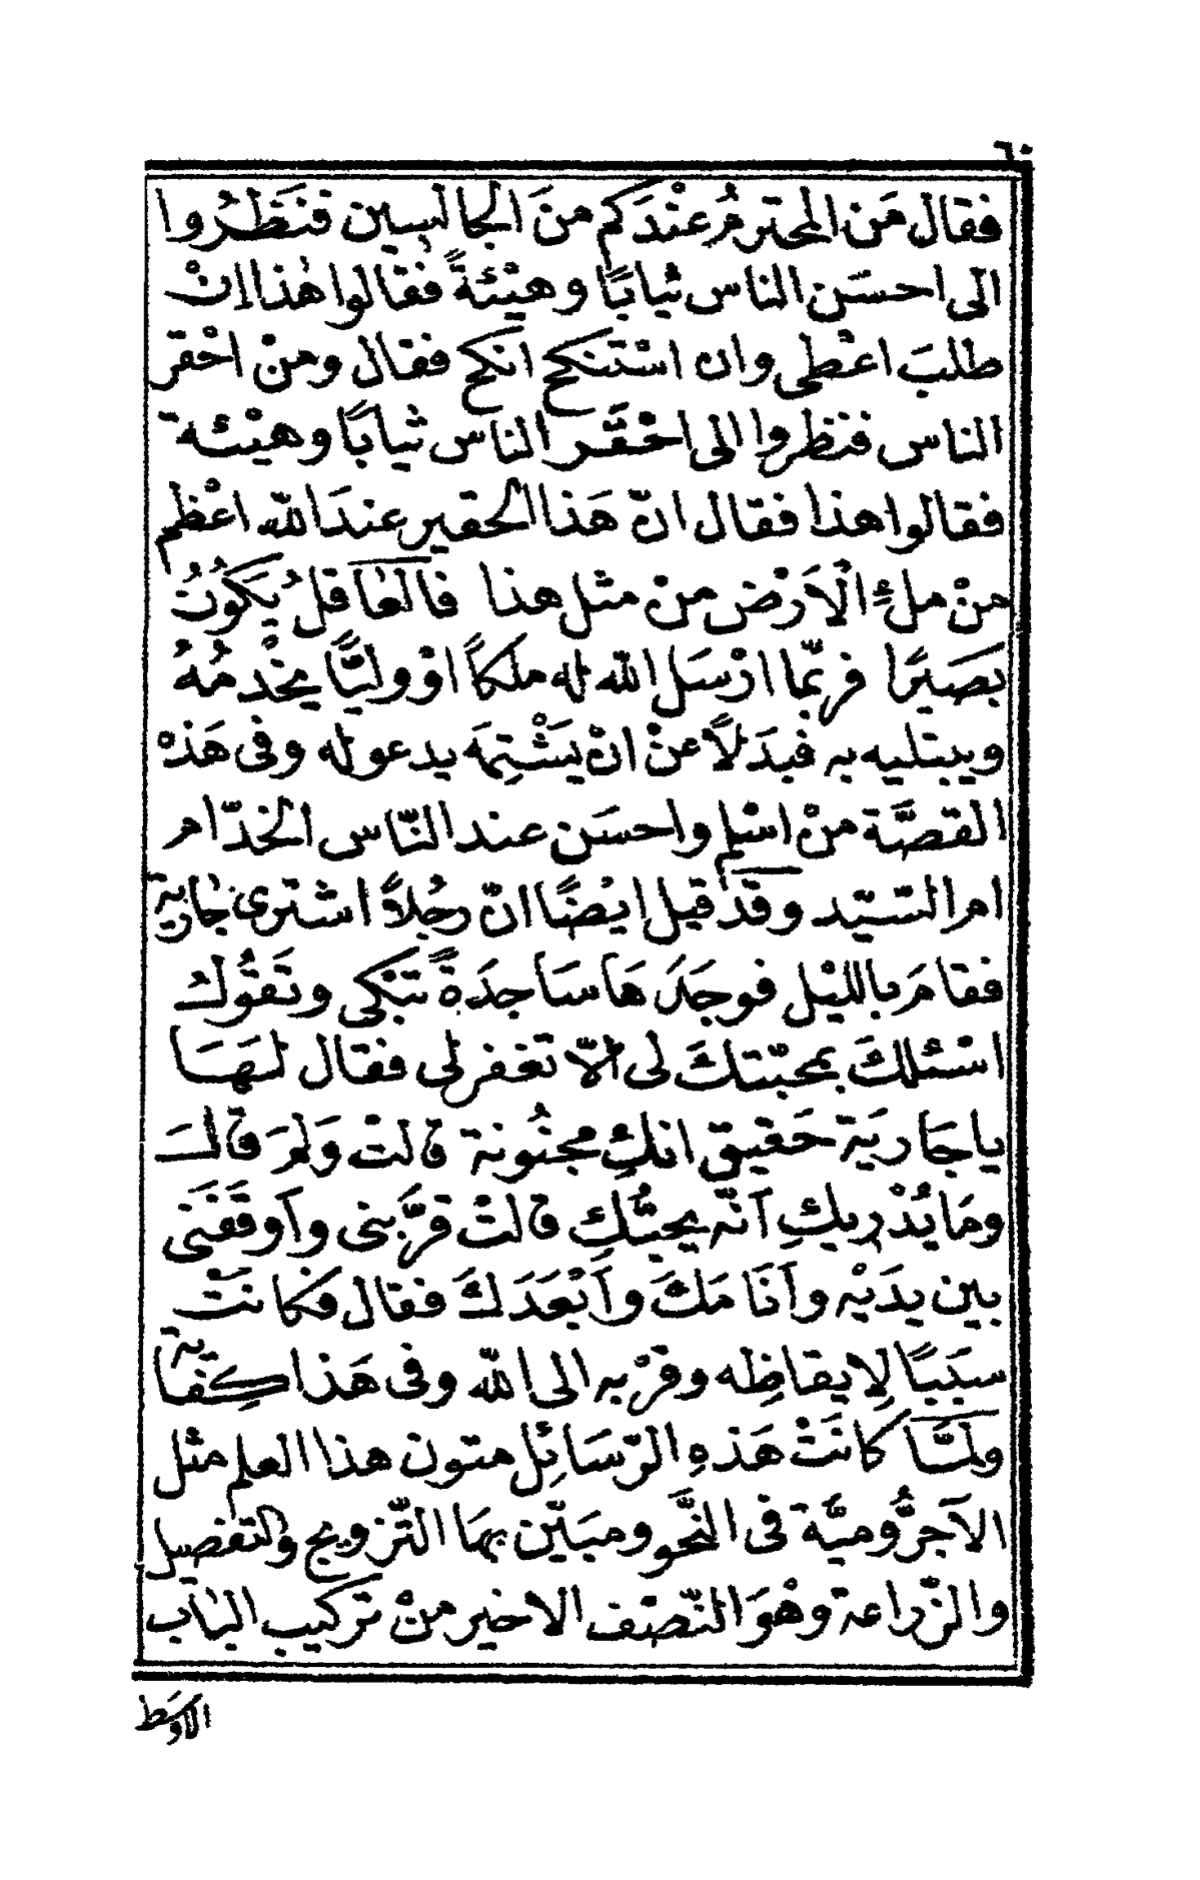 ٦٠
فقال مَن المحترمُ عنْدَكم منَ الجالسين فنَظَرُوا
الى احسَن الناس ثيابًا وهيْئةً فقالوا هٰذا اِنْ
طلبَ اعْطى وان اسْتنكح انكح فقال ومنْ احْقر
الناس فنظروا الى احْقَر الناس ثيابًا وهيْئة
فقالوا هذا فقال انّ هَذا الحقير عندَ اللّه اعْظم
منْ ملءِ الْاَرْض منْ مثل هذا فالعٰاقلُ يكَوُنُ
بصَيَرًا فربّما ارْسَل اللّه له ملكاً اوْ وليًّا يخْدمُهُ
ويبتليه به فبدَلاً عنْ انْ يَشْتِمَه يدعو له وفى هَذه
القصَّة منْ اسْلم واحسَن عند النّاس الخدّام
ام السّيّد وقدْ قيل ايْضًا انّ رجُلاً اشترى جٰارية
فقامَ بالليْل فوجَدَ هَا سَاجدَةً تبْكى وتقَوُل
اسْئلكَ بمحبّتكَ لى الّا تغفر لى فقال لَهَا
يا جَاريَة حَقيق انكِ مجنُونة قالتْ وَلمَ قالَ
ومَا يُدْريكِ اَنّه يحبُّكِ قالتْ قرَّبنى واَوقفَنى
بين يدَيْه واَنَا مَكَ واَبْعَدَكَ فقال فكانتْ
سبَبًا لِايقاظِه وقرْبه الى اللّه وفى هَذا كفاية
ولمّا كانَتْ هَذهِ الرّسَائِل متون هذا العلم مثل
الآجرُّوميَّة فى النَّحو ومبَيّن بهَا التّزويج والتفصيل
والزّراعة وهْوَ النّصْف الاخير منْ تركيب البٰاب
الاوسَط